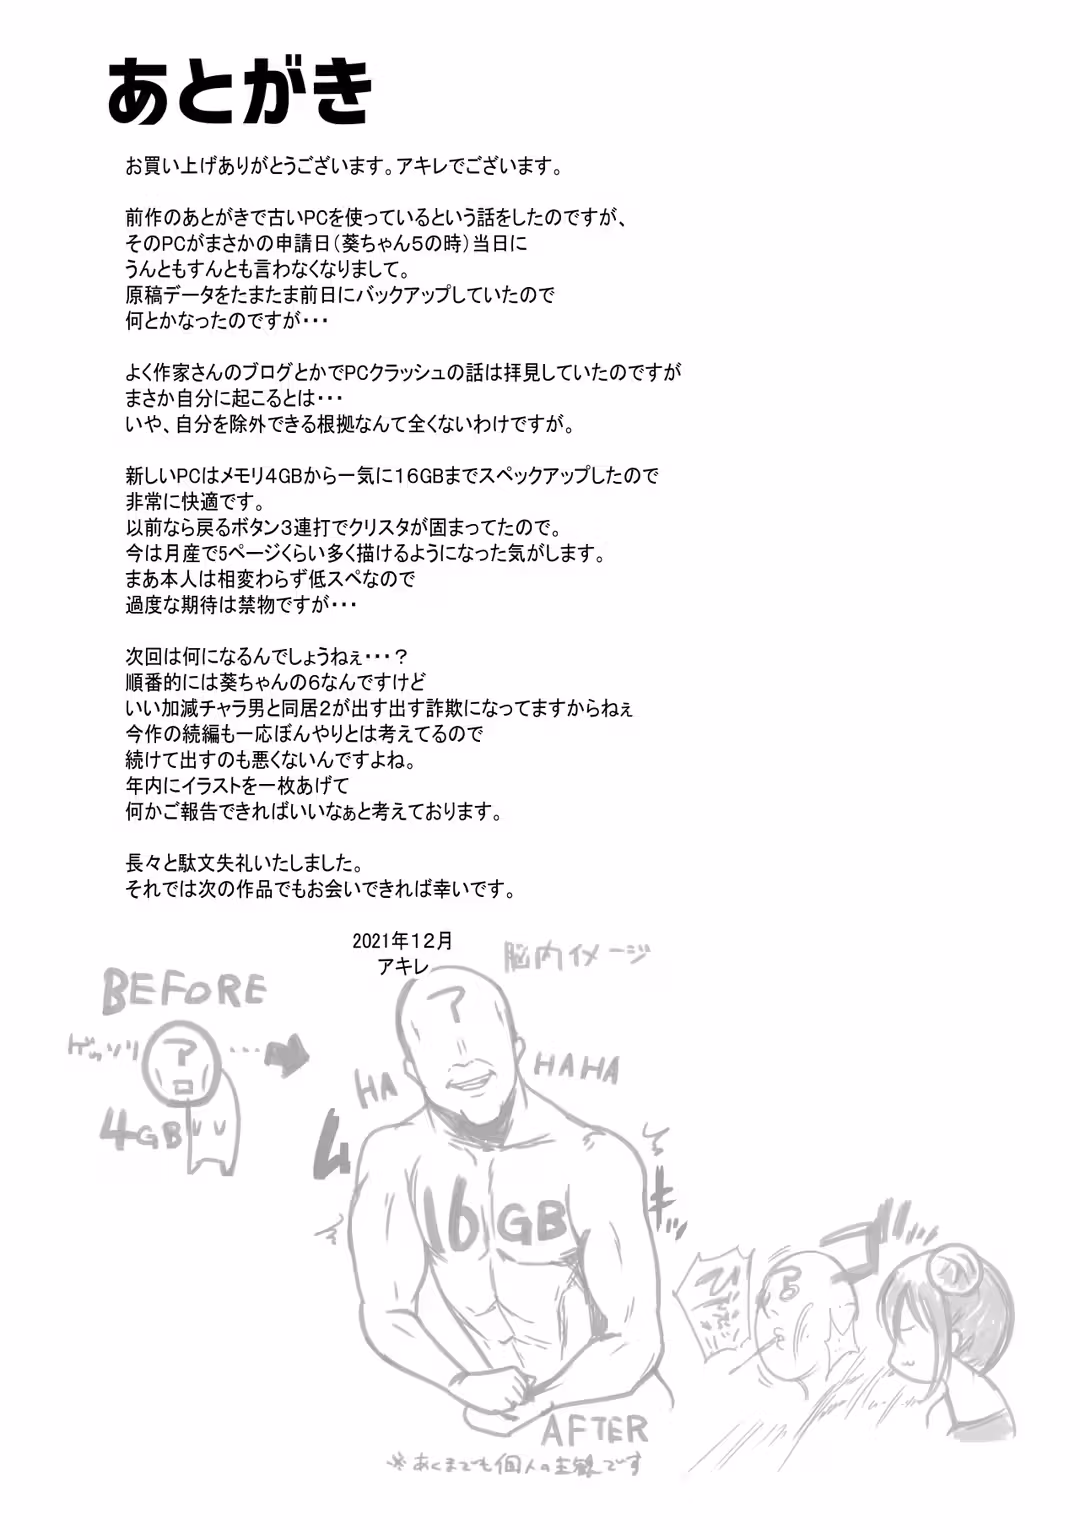 あとがき
お買い上げありがとうございます。アキレでございます。
前作のあとがきで古いPCを使っているという話をしたのですが、
そのPCがまさかの申請日(葵ちゃん5の時)当日に
うんともすんとも言わなくなりまして。
原稿データをたまたま前日にバックアップしていたので
何とかなったのですが・・・
よく作家さんのブログとかでPCクラッシュの話は拝見していたのですが
まさか自分に起こるとは・・・
いや、自分を除外できる根拠なんて全くないわけですが。
新しいPCはメモリ4GBから一気に16GBまでスペックアップしたので
非常に快適です。
以前なら戻るボタン3連打でクリスタが固まってたので。
今は月産で5ページくらい多く描けるようになった気がします。
まあ本人は相変わらず低スペなので
過度な期待は禁物ですが・・・
次回は何になるんでしょうねぇ・・・?
順番的には葵ちゃんの6なんですけど
いい加減チャラ男と同居2が出す出す詐欺になってますからねぇ
今作の続編も一応ぼんやりとは考えてるので
続けて出すのも悪くないんですよね。
年内にイラストを一枚あげて
何かご報告できればいいなぁと考えております。
長々と駄文失礼いたしました。
それでは次の作品でもお会いできれば幸いです。
2021年12月
アキレ
脳内イメージ
BEFORE
ゲッソリ
?
4GB
?
HA
HAHA
ムキッ
16GB
AFTER
※あくまでも個人の主観です
ゴ